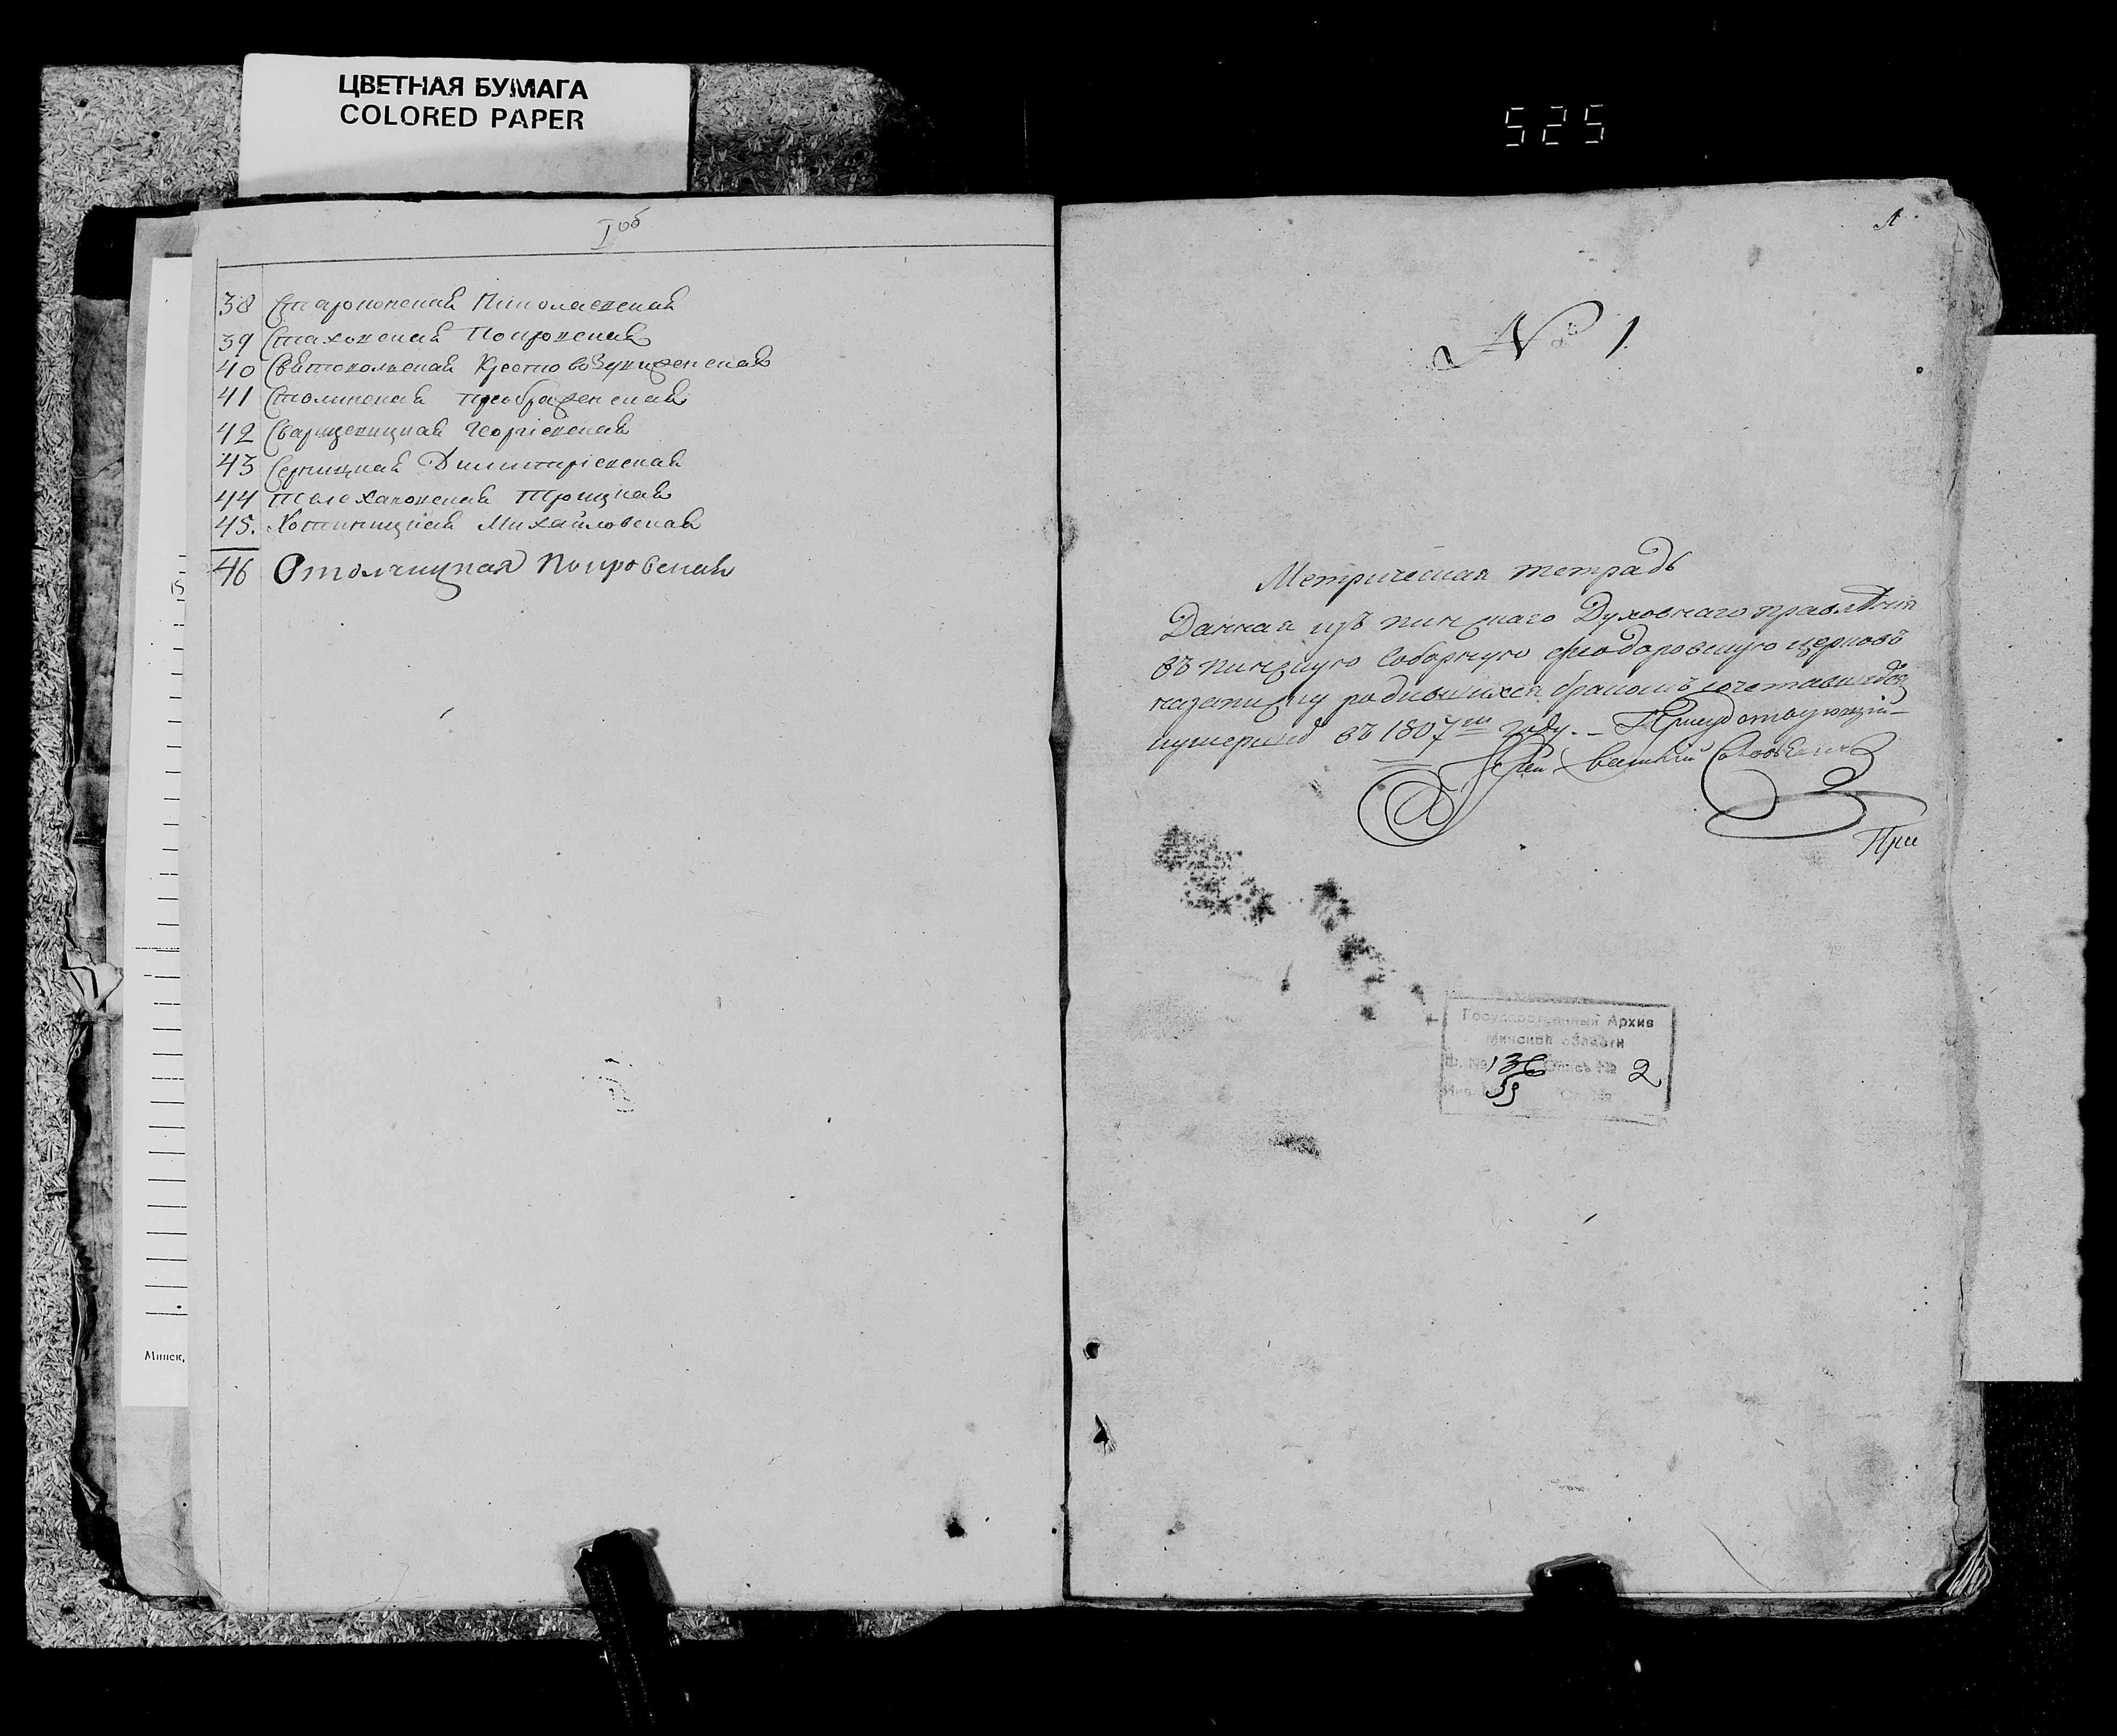 ЦВЕТНАЯ БУМАГА
COLORED PAPER
525
I об
38 Староконская Николаевская
39 Стаховская Покровская
40 Святовольская Крестовоздвиженская
41 Столинская Преображенская
42 Сварицевицкая Георгіевская
43 Серницкая Димитріевская
44 Телеханская Троицкая
45. Хотиницкая Михайловская
46 Отолчицкая Покровская
15
Минск,
1.
№ 1
Метрическая тетрадь
Данная изъ пинскаго Духовнаго правленія
въ пинскую Соборную феодоровскую церковь
на записку родившихся бракомъ сочетавшихся
и умершихъ въ 1807м году. – Присудствующій
Василій
При
Государственный Архив
Минской области
Ф. № 136 Опись № 2